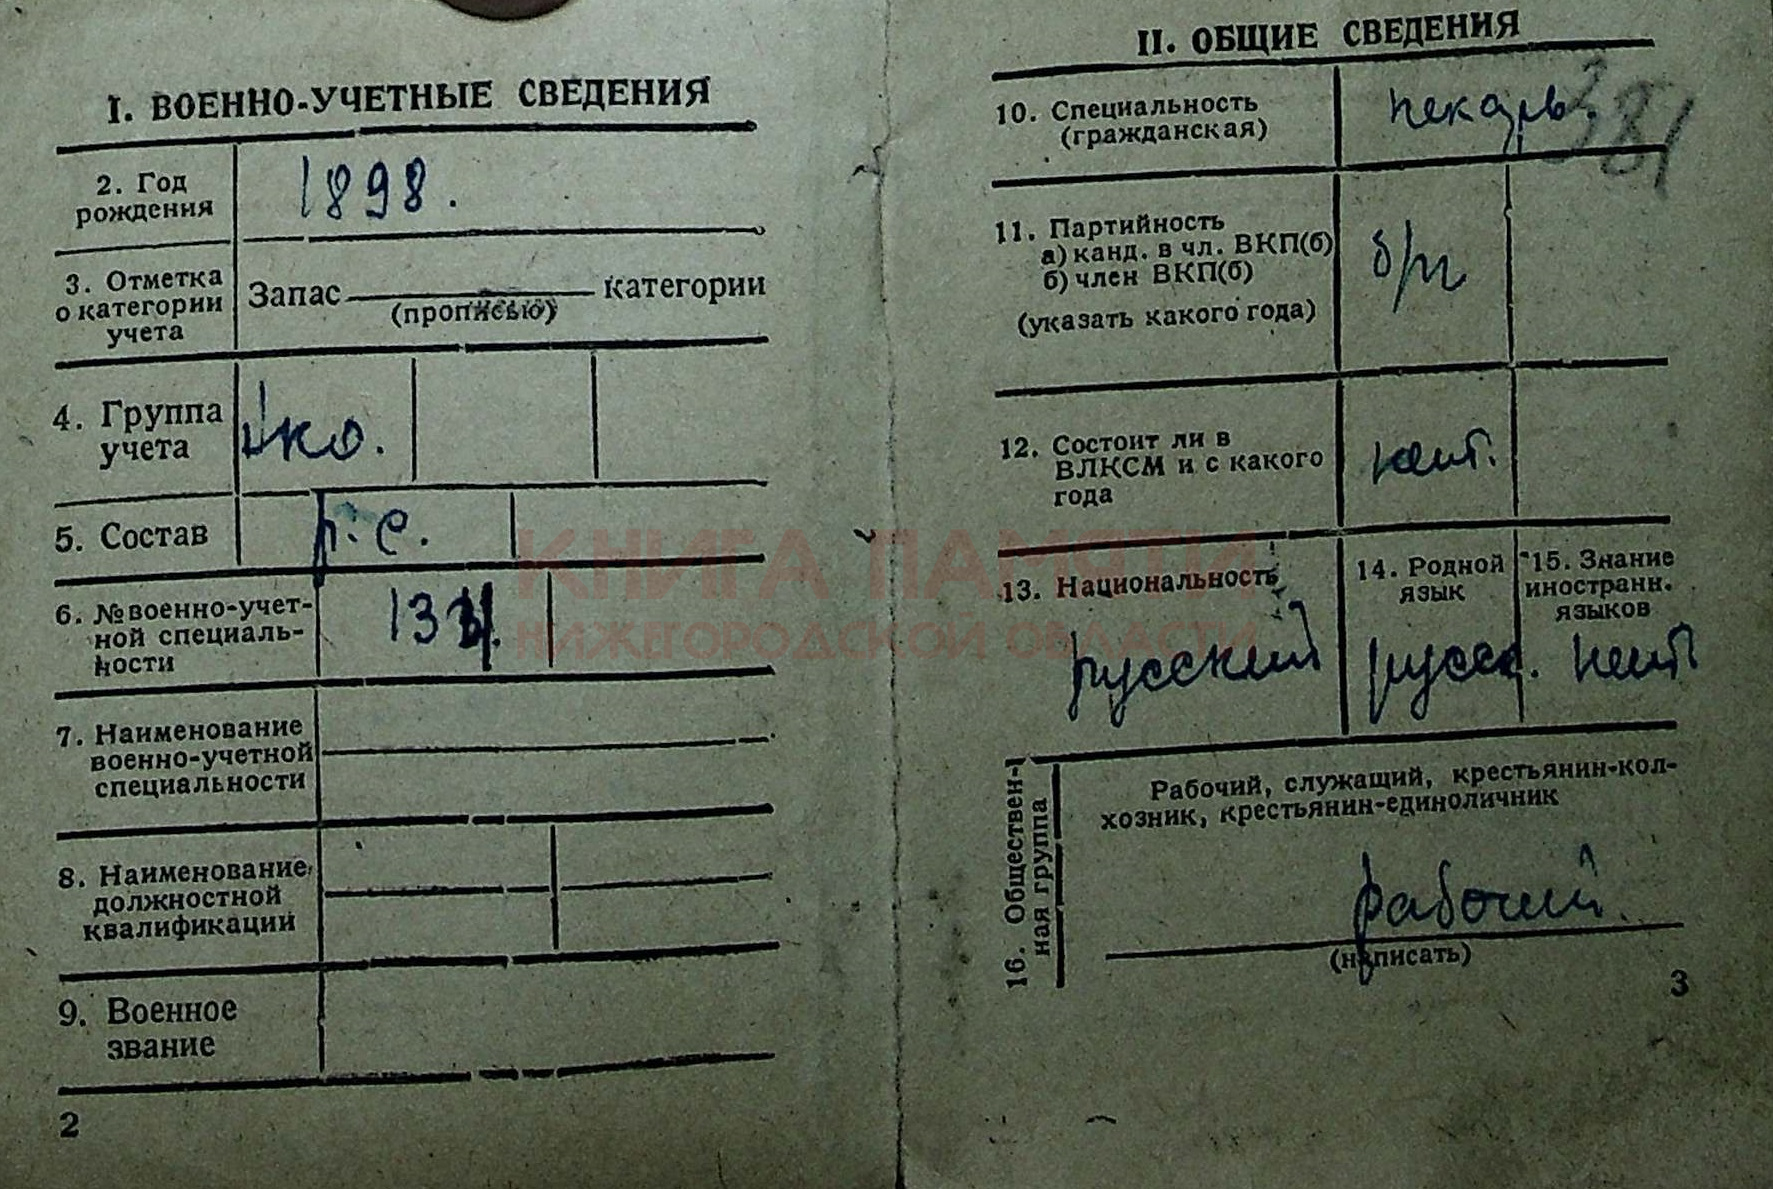 I. ВОЕННО-УЧЕТНЫЕ СВЕДЕНИЯ
2. Год
рождения
1898.
3. Отметка
о категории
учета
Запас категории
(прописью)
4. Группа
учета
5. Состав
р. с.
6. № военно-учет-
ной специаль-
ности
7. Наименование
военно-учетной
специальности
8. Наименование
должностной
квалификации
9. Военное
звание
2
II. ОБЩИЕ СВЕДЕНИЯ
10. Специальность
(гражданская)
пекарь
381
11. Партийность
а) канд. в чл. ВКП(б)
б) член ВКП(б)
(указать какого года)
б/п
12. Состоит ли в
ВЛКСМ и с какого
года
нет.
13. Национальность
русский
14. Родной
язык
русск.
15. Знание
иностранн.
языков
нет
16. Обществен-
ная группа
Рабочий, служащий, крестьянин-кол-
хозник, крестьянин-единоличник
рабочий.
(написать)
3
КНИГА ПАМЯТИ
НИЖЕГОРОДСКОЙ ОБЛАСТИ